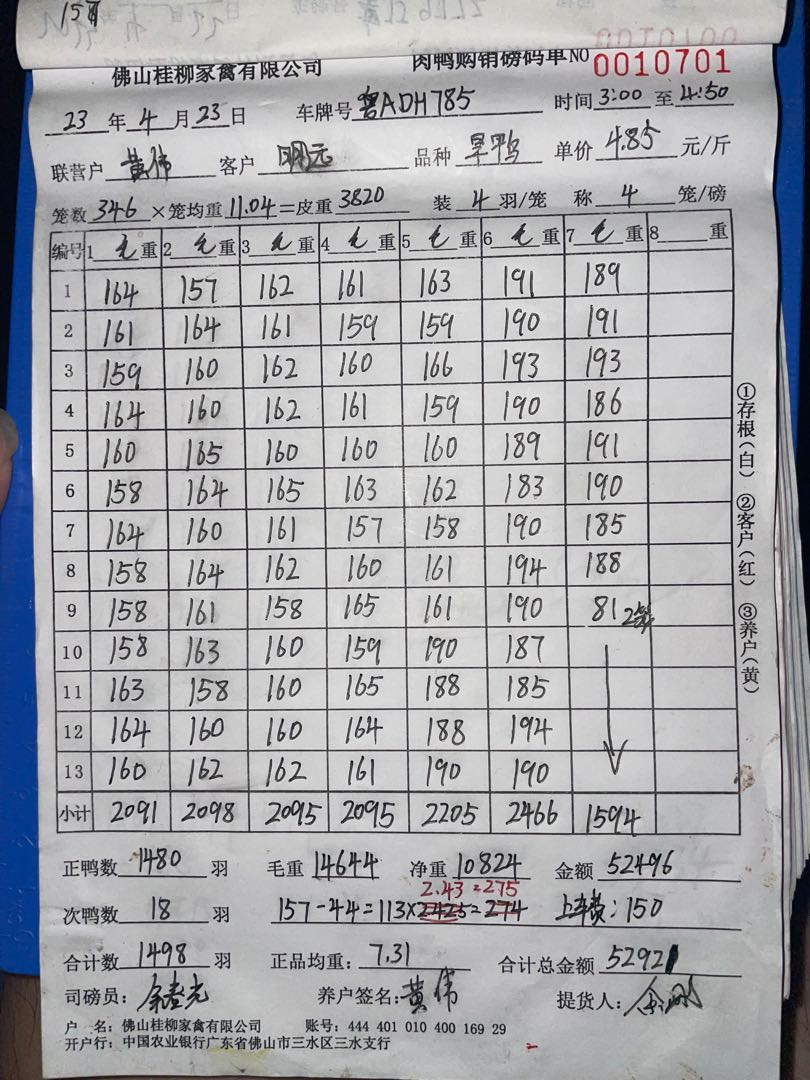 佛山桂柳家禽有限公司 肉鸭购销磅码单 NO 0010701
23 年 4 月 23 日 车牌号 粤ADH785 时间 3:00 至 4:50
联营户 黄伟 客户 明远 品种 旱鸭 单价 4.85 元/斤
笼数 346 ×笼均重 11.04 =皮重 3820 装 4 羽/笼 称 4 笼/磅
编号 1 毛 重 2 毛 重 3 毛 重 4 毛 重 5 毛 重 6 毛 重 7 毛 重 8 重
1 164 157 162 161 163 191 189
2 161 164 161 159 159 190 191
3 159 160 162 160 166 193 193
4 164 160 162 161 159 190 186
5 160 165 160 160 160 189 191
6 158 164 165 163 162 183 190
7 164 160 161 157 158 190 185
8 158 164 162 160 161 194 188
9 158 161 158 165 161 190 81
10 158 163 160 159 190 187
11 163 158 160 165 188 185
12 164 160 160 164 188 194
13 160 162 162 161 190 190
小计 2091 2098 2095 2095 2205 2466 1594
正鸭数 1480 羽 毛重 14644 净重 10824 金额 52496
2.43=275
次鸭数 18 羽 157-44=113×2.425=274 上车费:150
合计数 1498 羽 正品均重: 7.31 合计总金额 52921
司磅员: 养户签名: 黄伟 提货人:
户 名: 佛山桂柳家禽有限公司 账号: 444 401 010 400 169 29
开户行: 中国农业银行广东省佛山市三水区三水支行
①存根(白) ②客户(红) ③养户(黄)